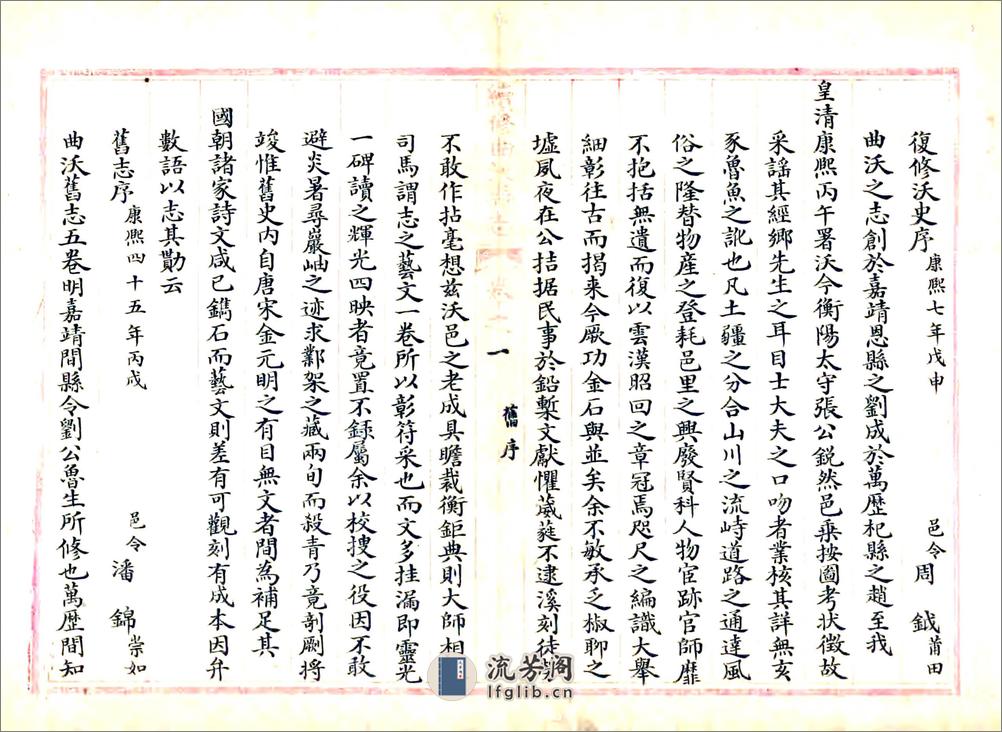 復修沃史序 康熙七年戊申 邑令周鉞莆田
曲沃之志創於嘉靖恩縣之劉成於萬歷杞縣之趙至我
皇清康熙丙午署沃令衡陽太守張公銳然邑乘按圖考狀徵故
采謠其經鄉先生之耳目士大夫之口吻者業核其詳無亥
豕魯魚之訛也凡土疆之分合山川之流峙道路之通達風
俗之隆替物産之登耗邑里之興廢賢科人物宦跡官師靡
不抱括無遺而復以雲漢昭回之章冠焉咫尺之編識大舉
細彰往古而揭來今厥功金石與並矣余不敏承乏椒聊之
墟夙夜在公拮据民事於鉛槧文獻懼葳蕤不逮溪刻徒
一 舊序
不敢作拈毫想兹沃邑之老成具瞻裁衡鉅典則大師相
司馬謂志之藝文一卷所以彰符采也而文多挂漏即靈光
一碑讀之輝光四映者竟置不録屬余以校搜之役因不敢
避炎暑尋巖岫之迹求鄴架之藏兩旬而殺青乃竟剞劂將
竣惟舊史内自唐宋金元明之有目無文者間為補足其
國朝諸家詩文咸已鐫石而藝文則差有可觀刻有成本因弁
數語以志其勤云
舊志序 康熙四十五年丙戌 邑令潘錦崇如
曲沃舊志五卷明嘉靖間縣令劉公魯生所修也萬歷間知
流芳閣
lfglib.cn